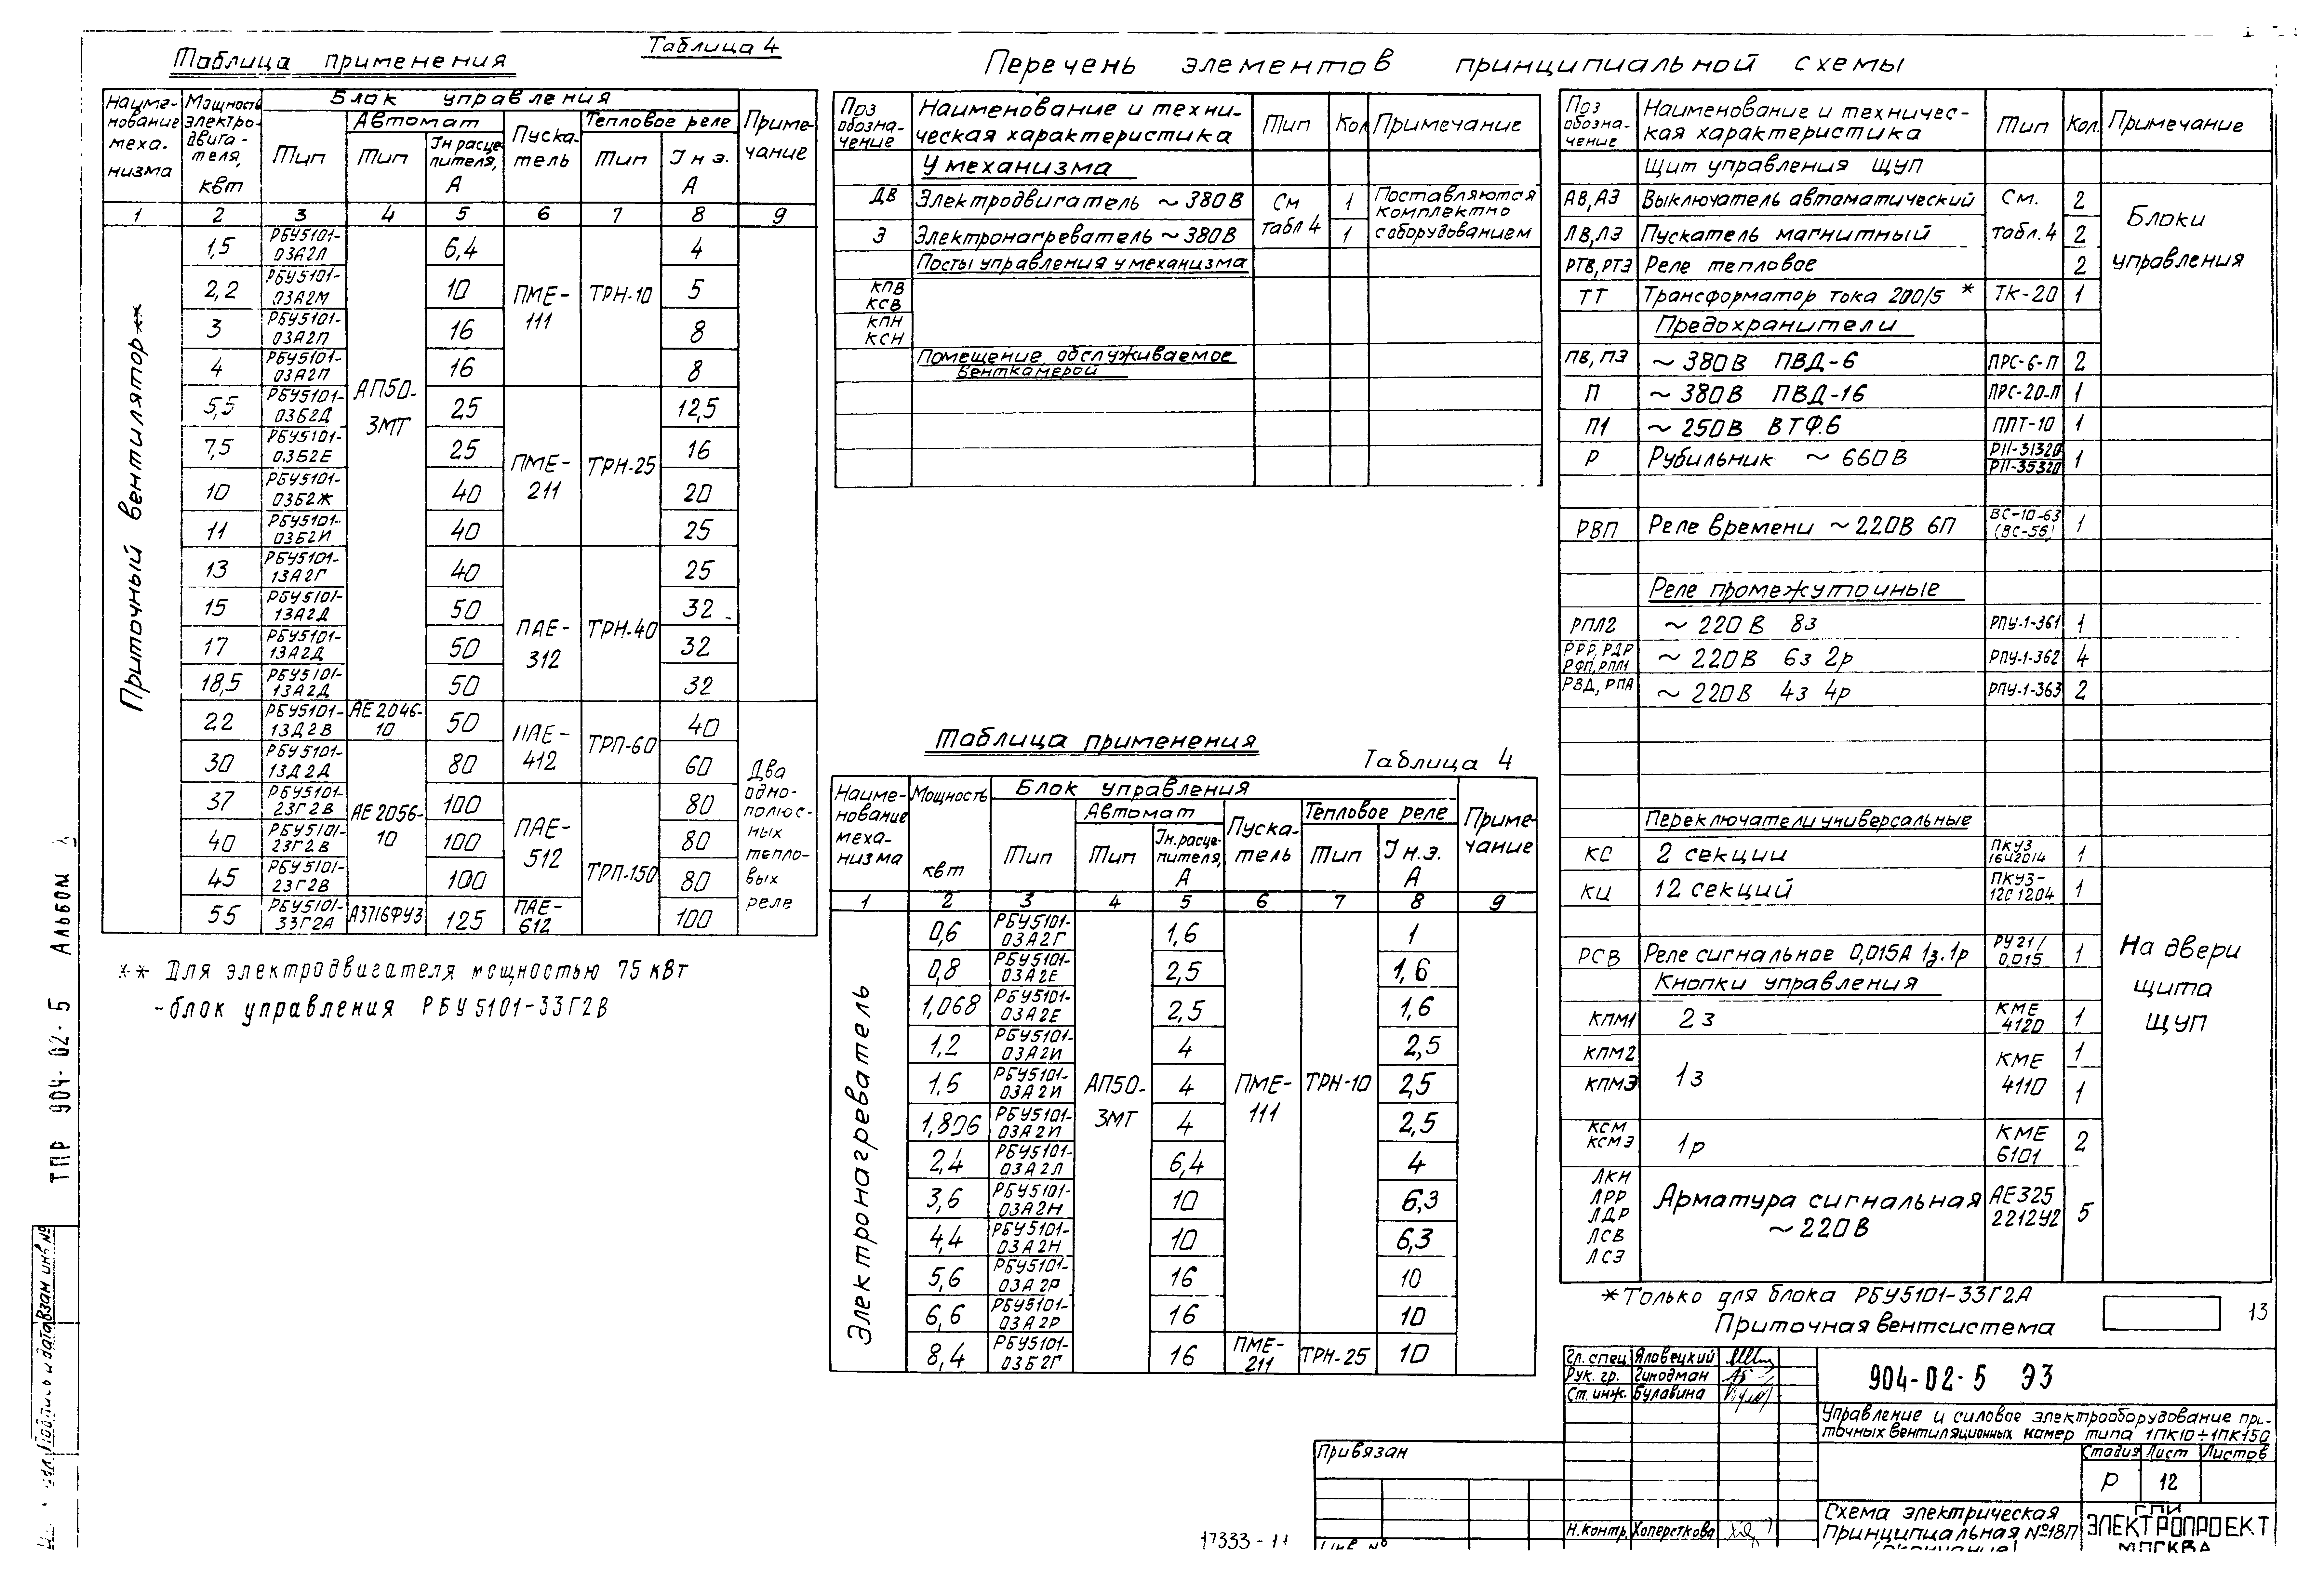 Таблица применения
Таблица 4
Наиме-нование меха-низма | Мощность электро-двига-теля, квт | Блок управления | Приме-чание
Тип | Автомат | Пуска-тель | Тепловое реле
Тип | Iн расце-пителя, А | Тип | Iн э. А
1 2 3 4 5 6 7 8 9
Приточный вентилятор**
1,5 РБУ5101-03А2Л АП50-3МТ 6,4 ПМЕ-111 ТРН-10 4
2,2 РБУ5101-03А2М 10 5
3 РБУ5101-03А2П 16 8
4 РБУ5101-03А2П 16 8
5,5 РБУ5101-03Б2Д 25 ПМЕ-211 ТРН-25 12,5
7,5 РБУ5101-03Б2Е 25 16
10 РБУ5101-03Б2Ж 40 20
11 РБУ5101-03Б2И 40 25
13 РБУ5101-13А2Г 40 ПАЕ-312 ТРН-40 25
15 РБУ5101-13А2Д 50 32
17 РБУ5101-13А2Д 50 32
18,5 РБУ5101-13А2Д 50 32
22 РБУ5101-13Д2В АЕ2046-10 50 ПАЕ-412 ТРП-60 40 Два одно-полюс-ных тепло-вых реле
30 РБУ5101-13Д2Д АЕ2056-10 80 60
37 РБУ5101-23Г2В 100 ПАЕ-512 ТРП-150 80
40 РБУ5101-23Г2В 100 80
45 РБУ5101-23Г2В 100 80
55 РБУ5101-33Г2А А3716ФУ3 125 ПАЕ-612 100
** Для электродвигателя мощностью 75 кВт
-блок управления РБУ5101-33Г2В
Перечень элементов принципиальной схемы
Поз обозна-чение | Наименование и техни-ческая характеристика | Тип | Кол | Примечание
У механизма
ДВ Электродвигатель ~380В См табл 4 1 Поставляются комплектно с оборудованием
Э Электронагреватель ~380В 1
Посты управления у механизма
КПВ
КСВ
КПН
КСН
Помещение обслуживаемое
венткамерой
Таблица применения
Таблица 4
Наиме-нование меха-низма | Мощность квт | Блок управления | Приме-чание
Тип | Автомат | Пуска-тель | Тепловое реле
Тип | Iн.расце-пителя, А | Тип | Iн.э. А
1 2 3 4 5 6 7 8 9
Электронагреватель
0,6 РБУ5101-03А2Г АП50-3МТ 1,6 ПМЕ-111 ТРН-10 1
0,8 РБУ5101-03А2Е 2,5 1,6
1,068 РБУ5101-03А2Е 2,5 1,6
1,2 РБУ5101-03А2И 4 2,5
1,6 РБУ5101-03А2И 4 2,5
1,806 РБУ5101-03А2И 4 2,5
2,4 РБУ5101-03А2Л 6,4 4
3,6 РБУ5101-03А2Н 10 6,3
4,4 РБУ5101-03А2Н 10 6,3
5,6 РБУ5101-03А2Р 16 10
6,6 РБУ5101-03А2Р 16 10
8,4 РБУ5101-03Б2Г 16 ПМЕ-211 ТРН-25 10
Поз обозна-чение | Наименование и техничес-кая характеристика | Тип | Кол. | Примечание
Щит управления ЩУП
АВ, АЭ Выключатель автоматический См. табл. 4 2 Блоки управления
ЛВ, ЛЭ Пускатель магнитный 2
РТВ, РТЭ Реле тепловое 2
ТТ Трансформатор тока 200/5 * ТК-20 1
Предохранители
ПВ, ПЭ ~380В ПВД-6 ПРС-6-П 2
П ~380В ПВД-16 ПРС-20-П 1
П1 ~250В ВТФ.6 ППТ-10 1
Р Рубильник ~660В РП-31320 РП-35320 1
РВП Реле времени ~220В 6П ВС-10-63 (ВС-56) 1
Реле промежуточные
РПЛ2 ~220В 8з РПУ-1-361 1
РРР, РДР РФП, РПЛ1 ~220В 6з 2р РПУ-1-362 4
РЗД, РПА ~220В 4з 4р РПУ-1-363 2
Переключатели универсальные
КС 2 секции ПКУ3 16И2014 1
КЦ 12 секций ПКУ3-12С1204 1
РСВ Реле сигнальное 0,015А 1з.1р РУ21/0,015 1 На двери щита ЩУП
Кнопки управления
КПМ1 2з КМЕ 4120 1
КПМ2 1з КМЕ 4110 1
КПМЭ 1
КСМ КСМЭ 1р КМЕ 6101 2
ЛКН
ЛРР
ЛДР
ЛСВ
ЛСЭ
Арматура сигнальная ~220В АЕ325 2212У2 5
*Только для блока РБУ5101-33Г2А
Приточная вентсистема
13
Гл. спец Яловецкий
Рук. гр. Гинодман
Ст. инж. Булавина
Н.контр. Хоперсткова
904-02-5 ЭЗ
Управление и силовое электрооборудование при-
точных вентиляционных камер типа 1ПК10÷1ПК150
Стадия Лист Листов
Р 12
Схема электрическая
принципиальная №18П
(окончание)
ГПИ
ЭЛЕКТРОПРОЕКТ
МОСКВА
Привязан
Инв №
17333-11
ТПР 904-02-5 Альбом
Подпись и дата
Взам инв №